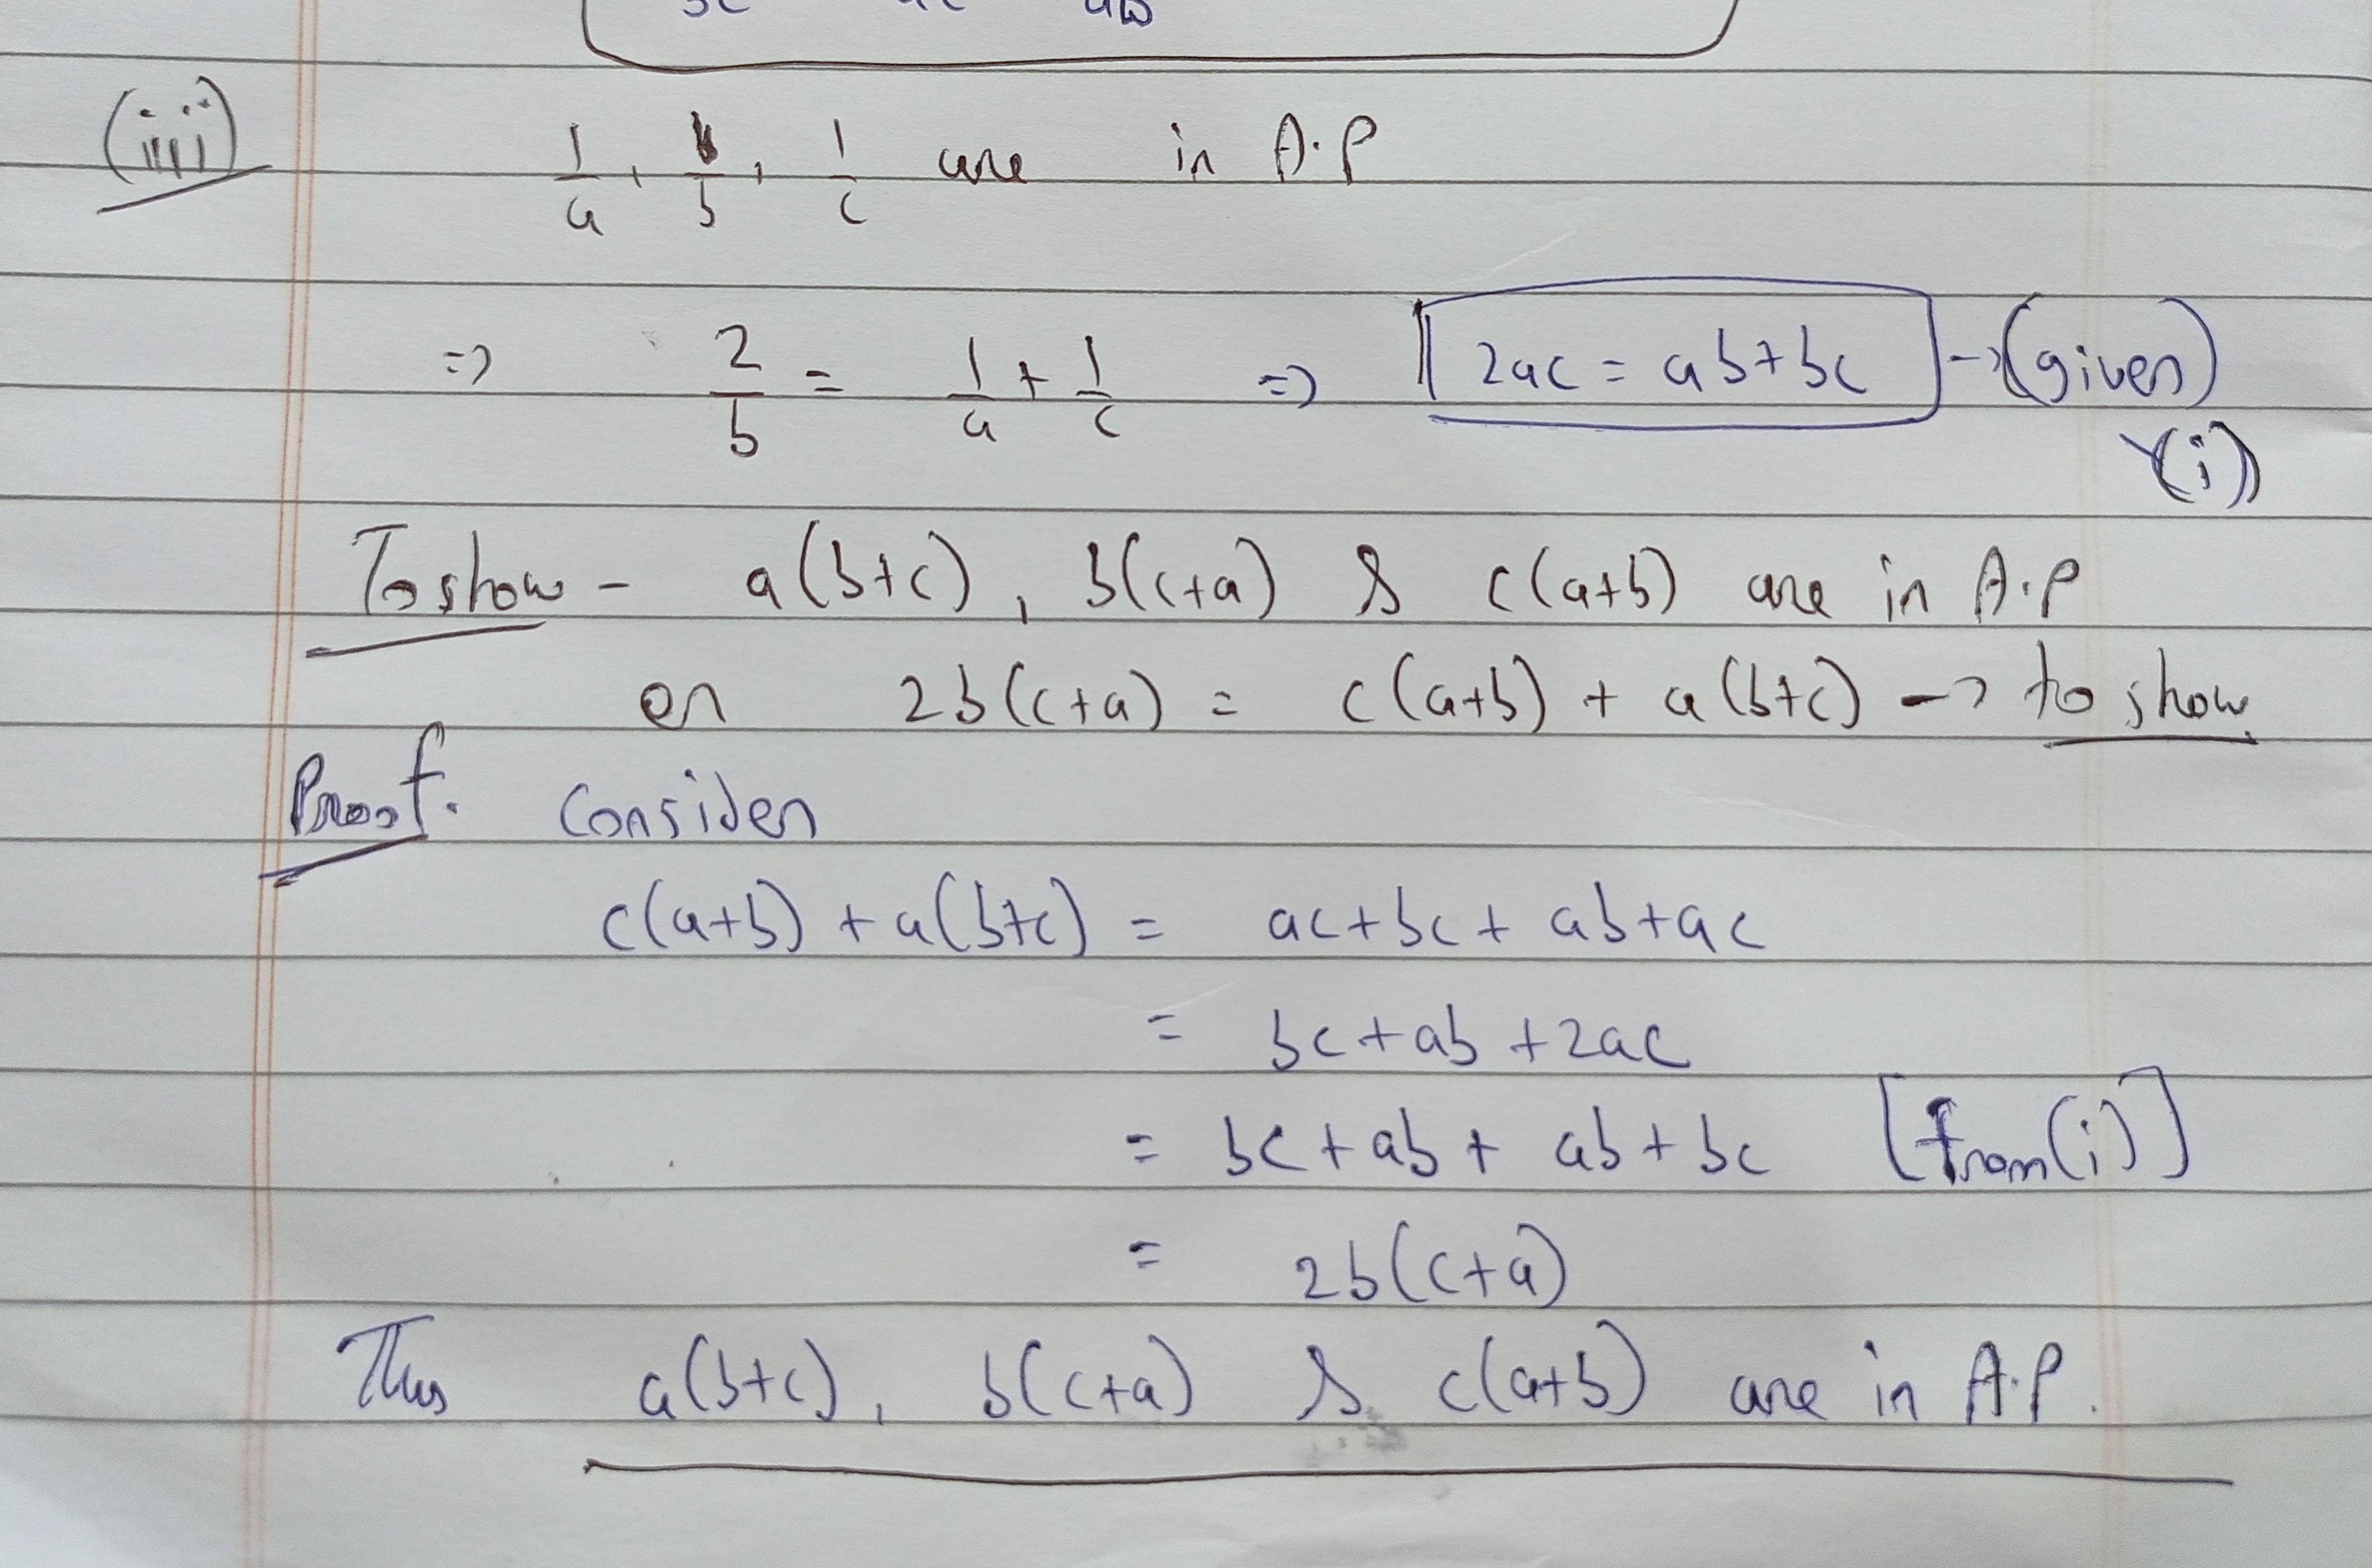 (iii) 1/a, 1/b, 1/c are in A.P
=> 2/b = 1/a + 1/c => 2ac = ab+bc -> (given)
(i)
To show - a(b+c), b(c+a) & c(a+b) are in A.P
or 2b(c+a) = c(a+b) + a(b+c) -> to show
Proof. Consider
c(a+b) + a(b+c) = ac+bc+ab+ac
= bc+ab+2ac
= bc+ab+ab+bc [from(i)]
= 2b(c+a)
Thus a(b+c), b(c+a) & c(a+b) are in A.P.